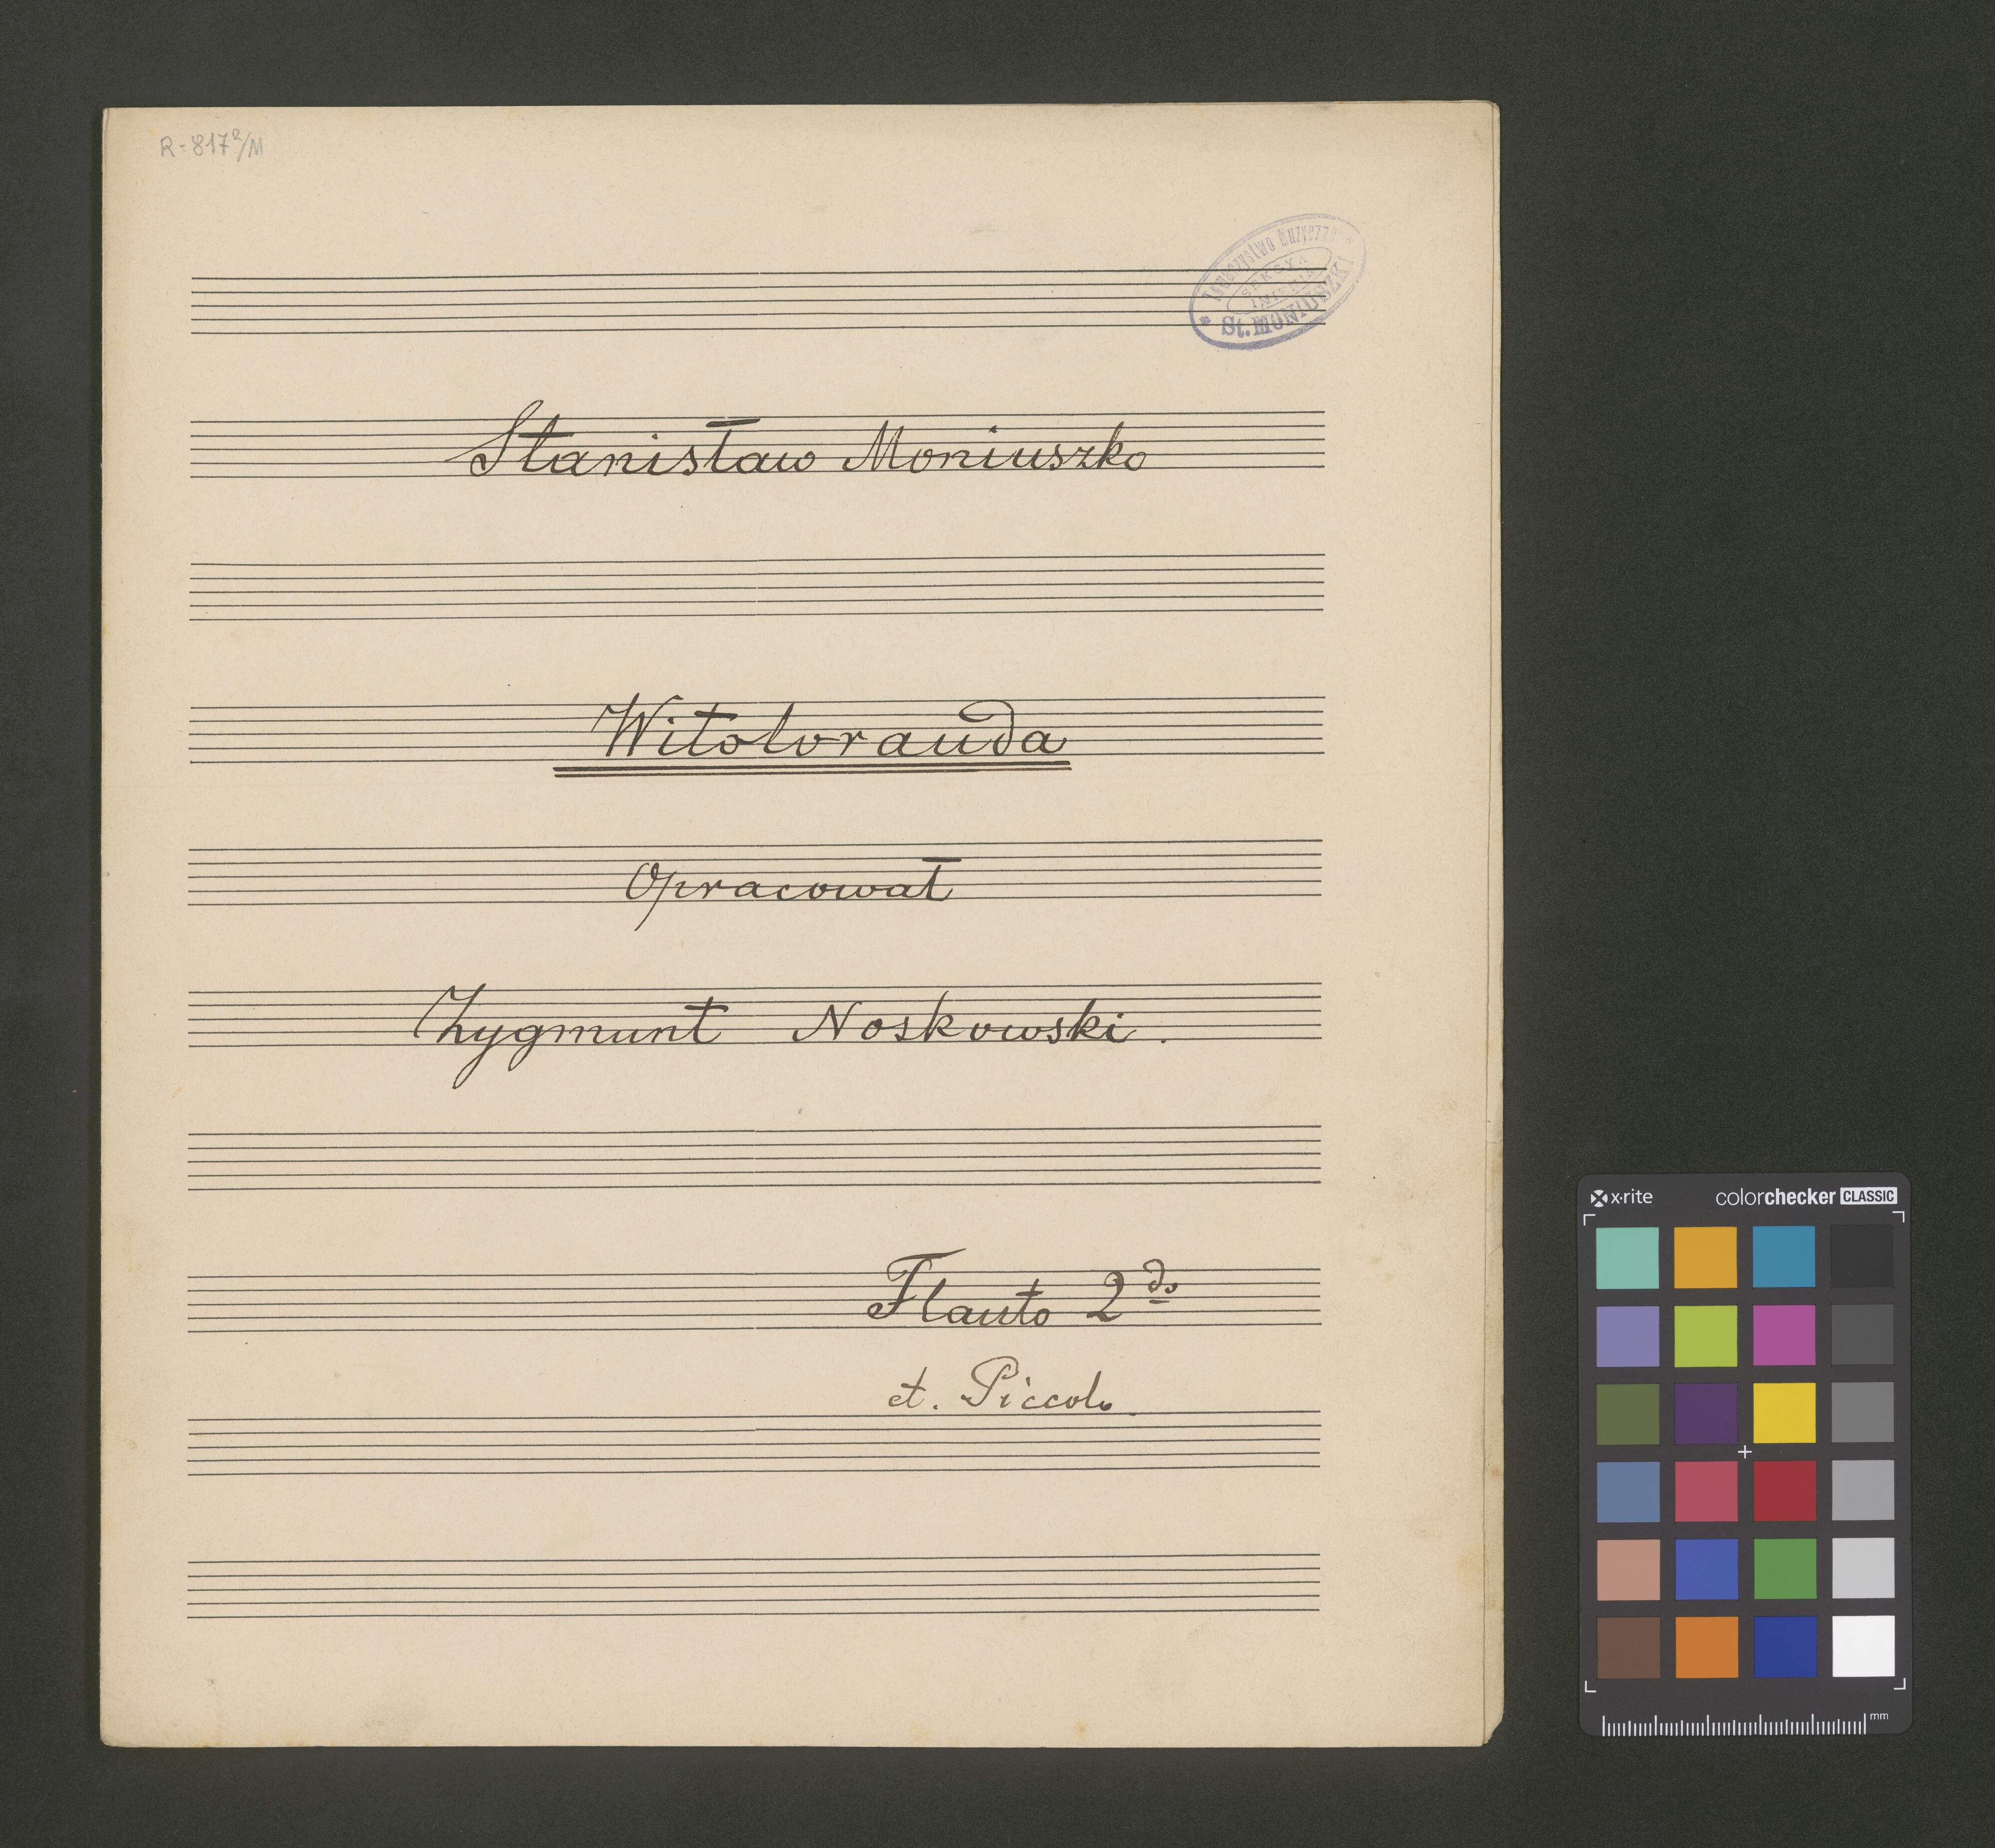 R-817²/M
Towarzystwo Muzyczne
SEKCYA
IMIENIA
St. MONIUSZKI
Stanisław Moniuszko
Witolorauda
Opracował
Zygmunt Noskowski.
Flauto 2do
et. Piccolo.
x·rite colorchecker CLASSIC
mm